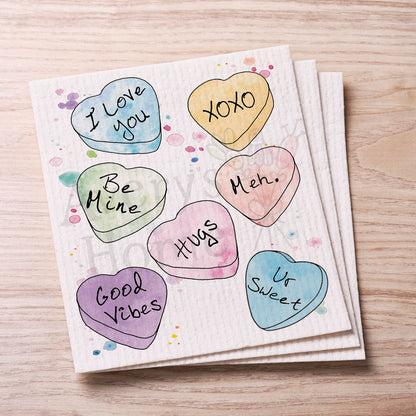 I Love
you
XOXO
Be
Mine
Meh.
Hugs
Good
Vibes
Ur
Sweet